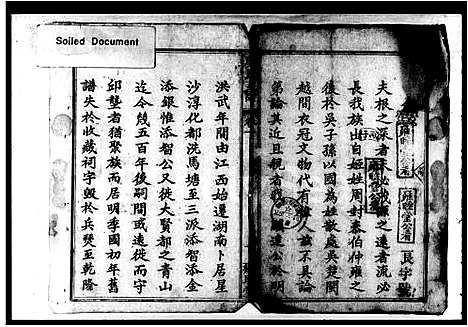 Soiled Document
夫根之深者末必茂源之遠者流必
長我族出自姬姓周封泰伯仲雍之
後於吳子孫以國為姓散處吳楚閩
越間衣冠文物代有偉人族不具論
第論其近且親者
達公於明
洪武年間由江西始遷湖南卜居星
沙淳化都洗馬塘至三派添智添金
添銀惟添智公又徙大賢都之青山
迄今幾五百年後嗣間或遠徙而守
邱壟者猶聚族而居明季國初年舊
譜失於收藏祠宇毀於兵燹至乾隆
長字號